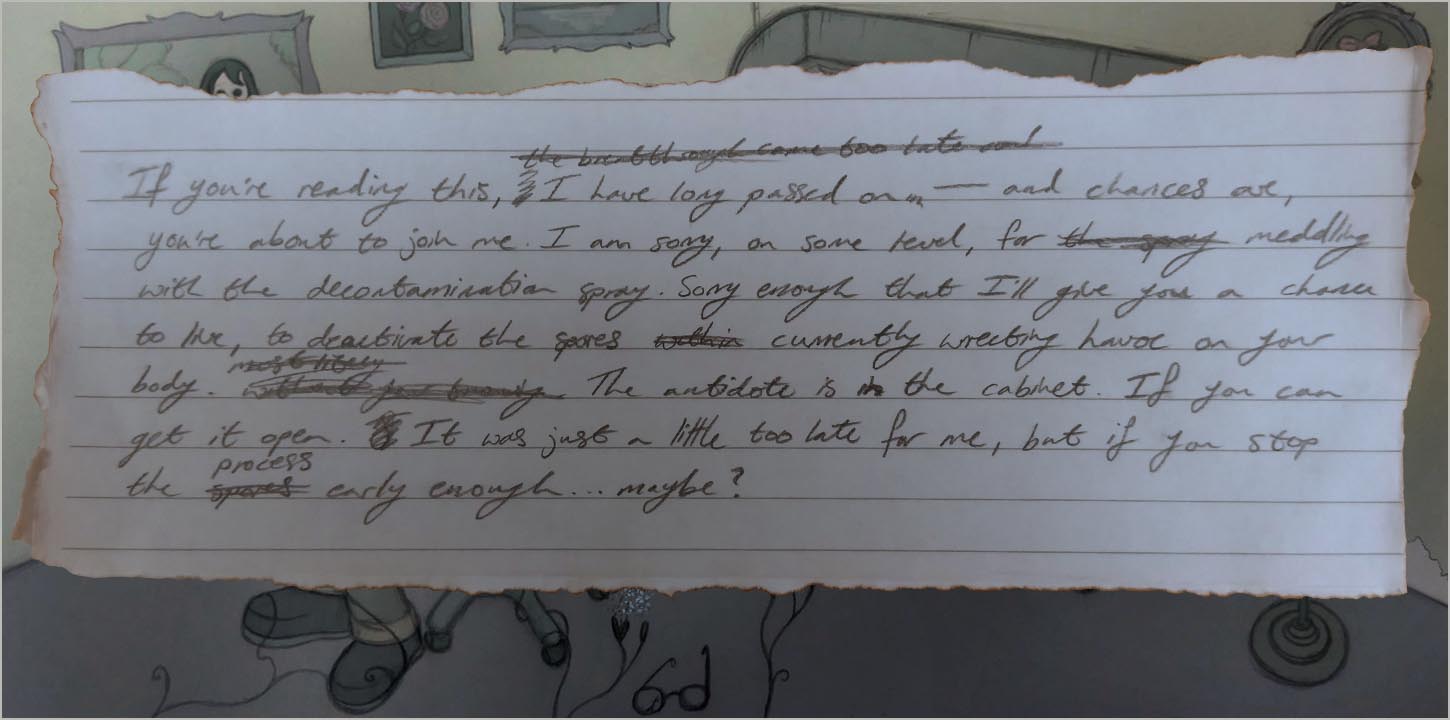 the breakthrough came too late and
If you're reading this, I have long passed on... — and chances are,
you're about to join me. I am sorry, on some level, for the spray meddling
with the decontamination spray. Sorry enough that I'll give you a chance
to live, to deactivate the spores within currently wrecking havoc on your
most likely
body. The antidote is in the cabinet. If you can
get it open. It was just a little too late for me, but if you stop
process
the spores early enough... maybe?